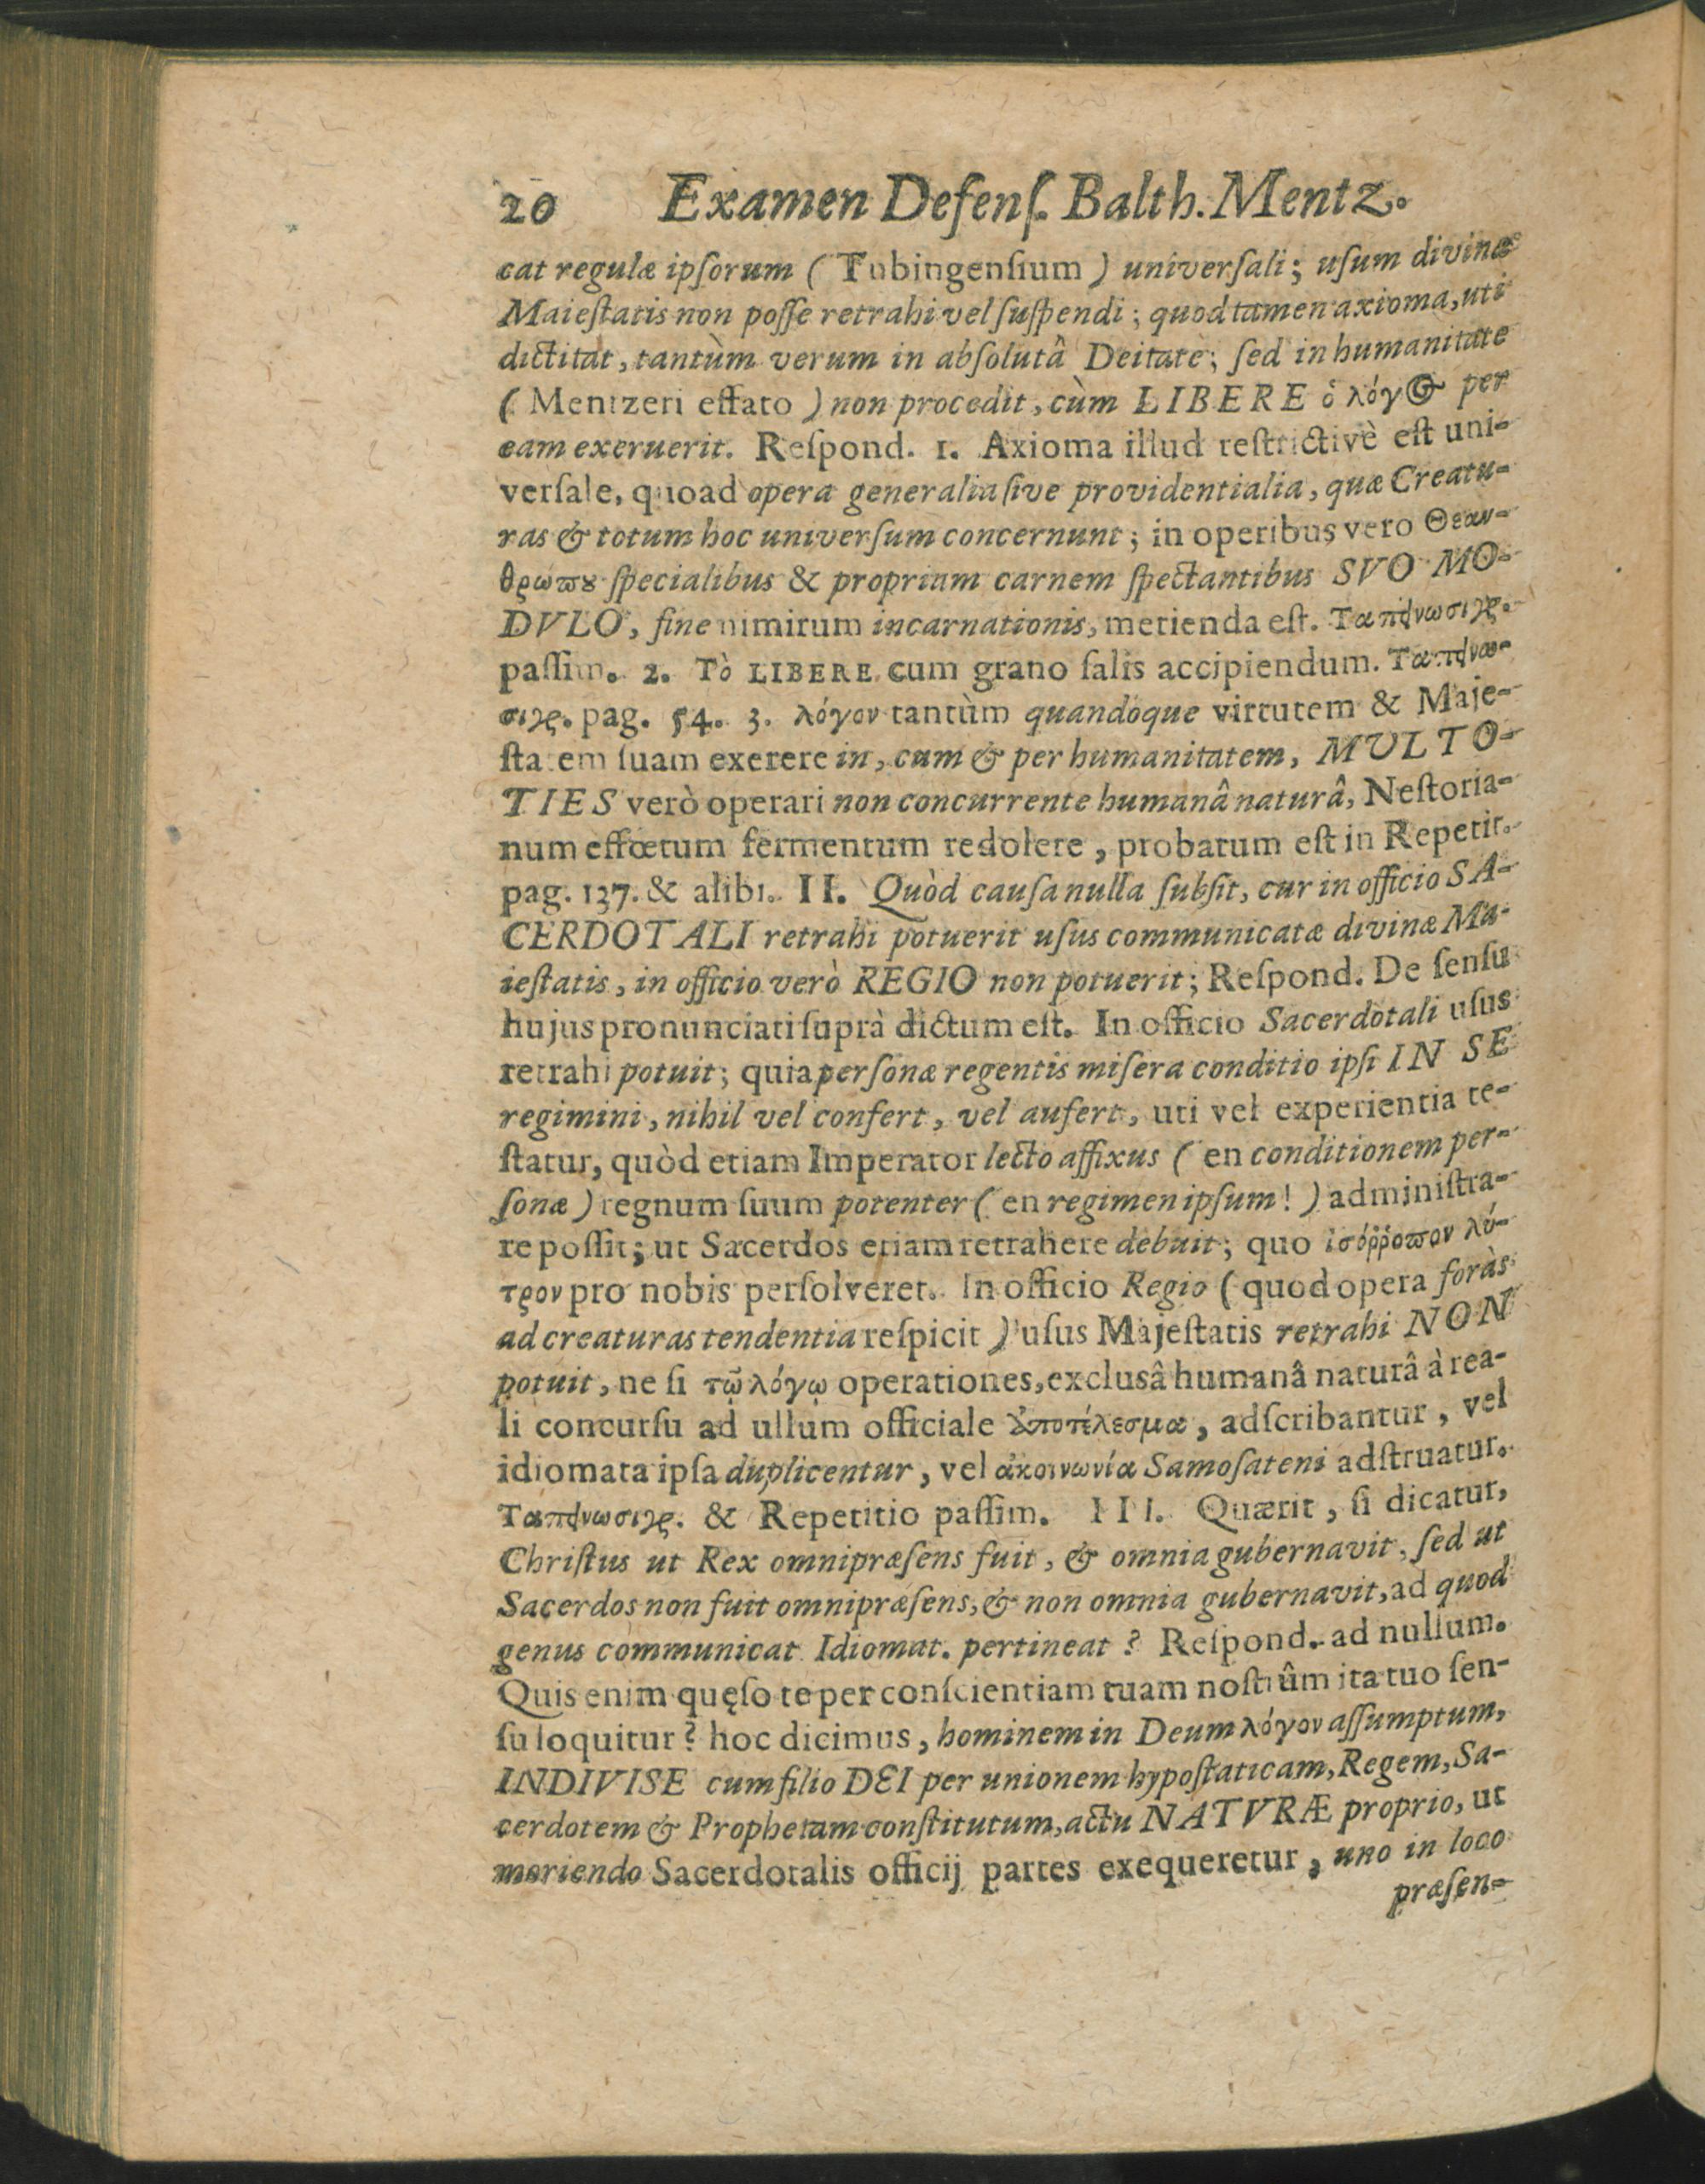 20 Examen Defenſ. Balth. Mentz.
cat regulæ ipſorum ( Tubingenſium ) univerſali; uſum divinæ
Maieſtatis non poſſe retrahi vel ſuſpendi; quod tamen axioma, uti
dictitat, tantùm verum in abſolutâ Deitate; ſed in humanitate
( Mentzeri effato ) non procedit, cùm LIBERE ὁ λόγος per
eam exeruerit. Reſpond. 1. Axioma illud reſtrictivè eſt uni-
verſale, quoad opera generalia ſive providentialia, quæ Creatu-
ras & totum hoc univerſum concernunt; in operibus vero Θεαν-
θρώπου ſpecialibus & propriam carnem ſpectantibus SVO MO-
DVLO, fine nimirum incarnationis, metienda eſt. Ταπείνωσιγρ.
paſſim. 2. Τὸ LIBERE cum grano ſalis accipiendum. Ταπείνω-
σιγρ. pag. 54. 3. λόγον tantùm quandoque virtutem & Maje-
ſtatem ſuam exerere in, cum & per humanitatem, MULTO-
TIES verò operari non concurrente humanâ naturâ, Neſtoria-
num effœtum fermentum redolere, probatum eſt in Repetit.
pag. 137. & alibi. II. Quòd cauſa nulla ſubſit, cur in officio SA-
CERDOTALI retrahi potuerit uſus communicatæ divinæ Ma-
ieſtatis, in officio verò REGIO non potuerit; Reſpond. De ſenſu
hujus pronunciati ſuprà dictum eſt. In officio Sacerdotali uſus
retrahi potuit; quia perſonæ regentis miſera conditio ipſi IN SE
regimini, nihil vel confert, vel aufert, uti vel experientia te-
ſtatur, quòd etiam Imperator lecto affixus ( en conditionem per-
ſonæ ) regnum ſuum potenter ( en regimen ipſum! ) adminiſtra-
re poſſit; ut Sacerdos etiam retrahere debuit; quo ἰσόῤῥοπον λύ-
τρον pro nobis perſolveret. In officio Regio ( quod opera foràs
ad creaturas tendentia reſpicit ) uſus Majeſtatis retrahi NON
potuit, ne ſi τῷ λόγῳ operationes, excluſâ humanâ naturâ à rea-
li concurſu ad ullum officiale ἀποτέλεσμα, adſcribantur, vel
idiomata ipſa duplicentur, vel ἀκοινωνία Samoſateni adſtruatur.
Ταπείνωσιγρ. & Repetitio paſſim. III. Quærit, ſi dicatur,
Chriſtus ut Rex omnipræſens fuit, & omnia gubernavit, ſed ut
Sacerdos non fuit omnipræſens, & non omnia gubernavit, ad quod
genus communicat. Idiomat. pertineat? Reſpond. ad nullum.
Quis enim quęſo te per conſcientiam tuam noſtrûm ita tuo ſen-
ſu loquitur? hoc dicimus, hominem in Deum λόγον aſſumptum,
INDIVISE cum filio DEI per unionem hypoſtaticam, Regem, Sa-
cerdotem & Prophetam conſtitutum, actu NATVRÆ proprio, ut
moriendo Sacerdotalis officij partes exequeretur, uno in loco
præſen-